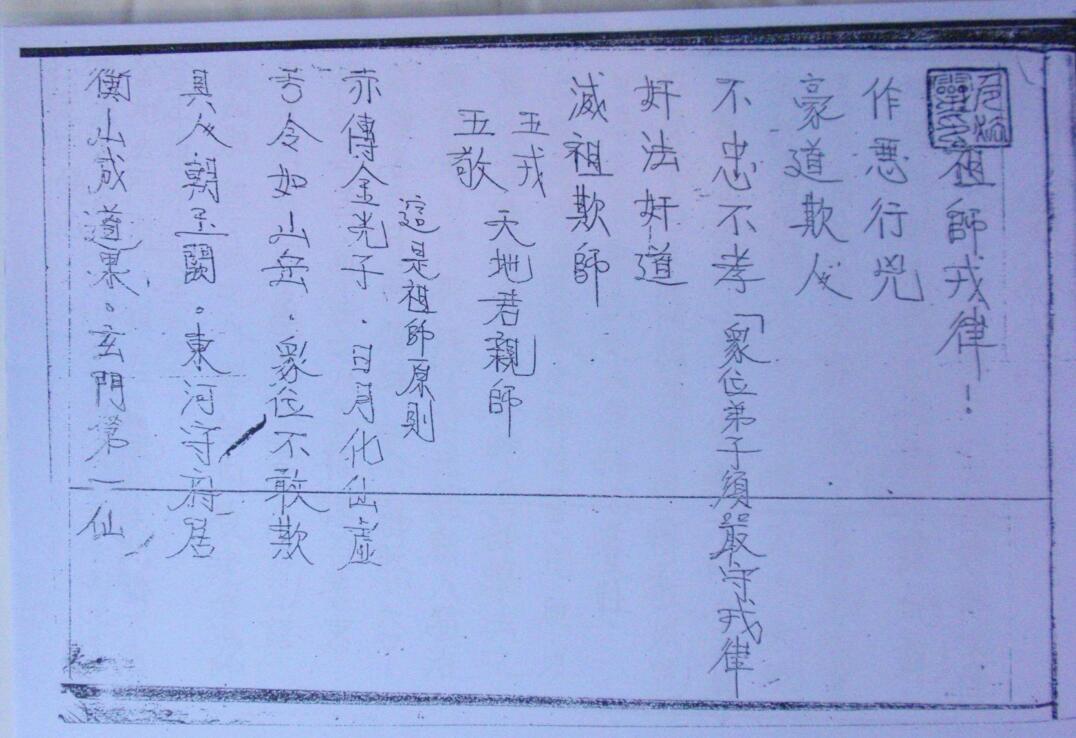 祖師戎律！
作悪行兇
豪道欺人
不忠不孝「眾位弟子須嚴守戎律
奸法奸道
滅祖欺師
五戎
五敬
天地君親師
這是祖師原則
亦傳金光子．日月化仙虛
号令如山岳．眾位不敢欺
真人朝玉闕。東河守府居
衡山成道果。玄門第一仙